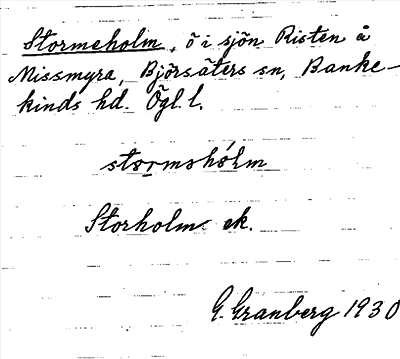 Stormeholm, ö i sjön Risten å
Missmyra, Björsäters sn, Banke-
kinds hd. Ögl. l.
stormshólm
Storholm ek.
G. Granberg 1930